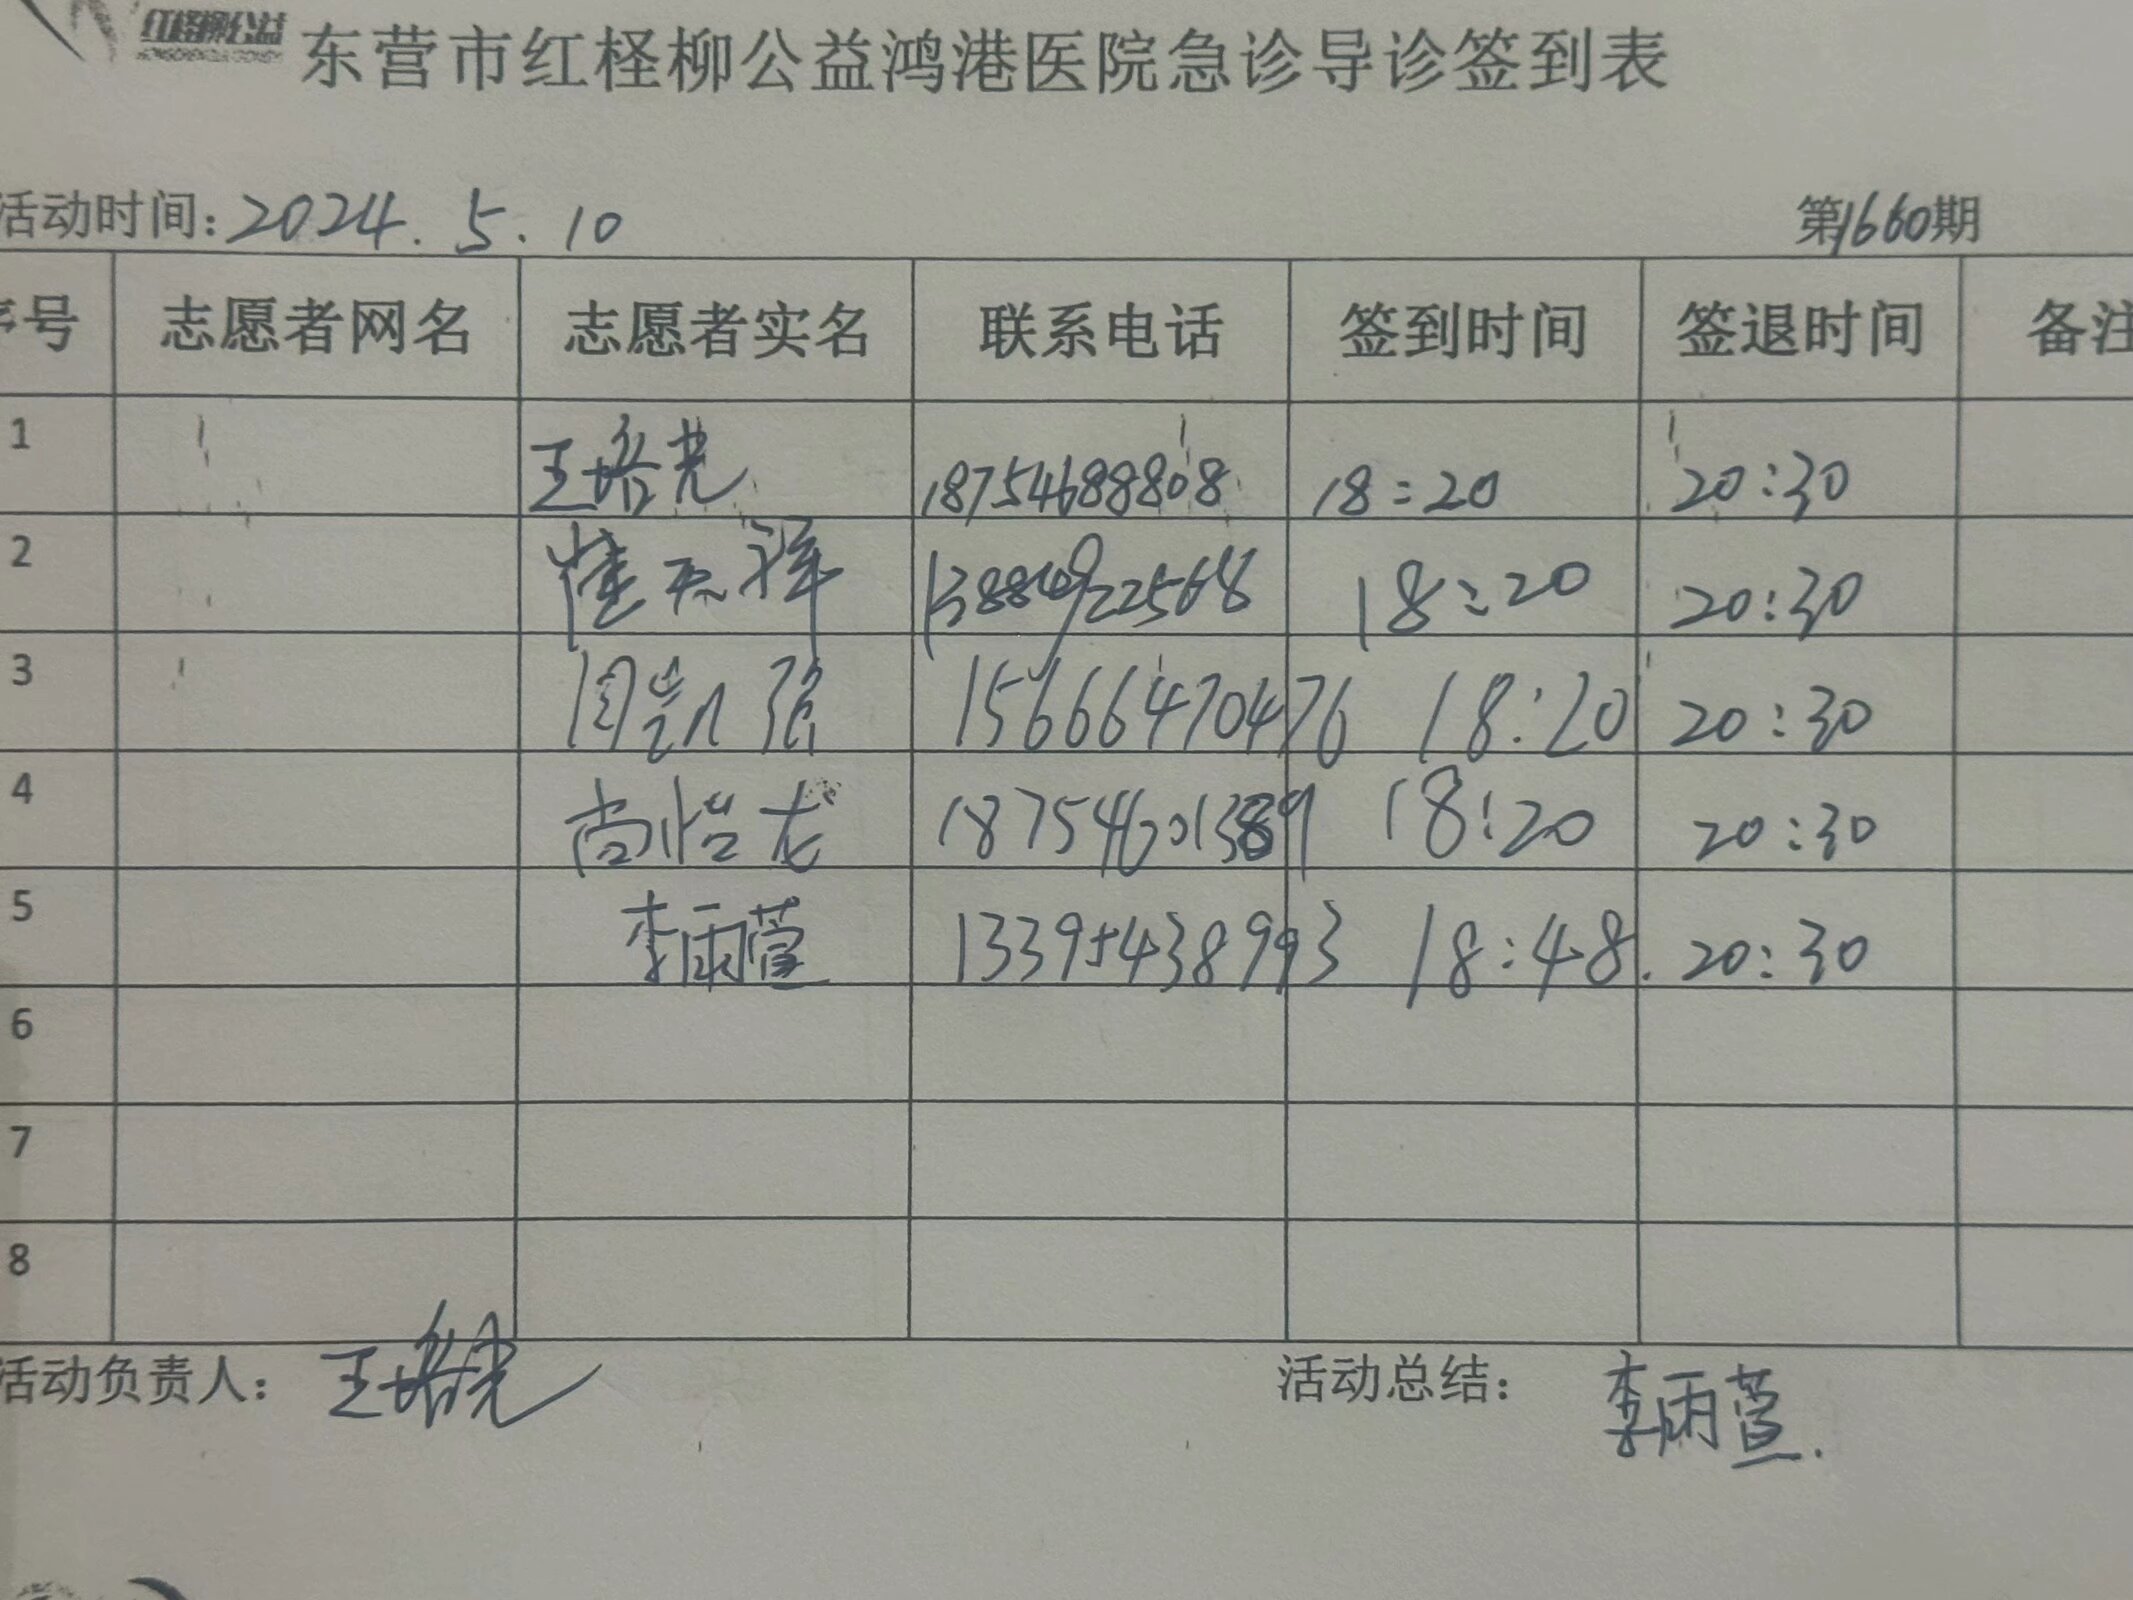 红柽柳公益
东营市红柽柳公益鸿港医院急诊导诊签到表
活动时间：2024.5.10 第1660期
序号 志愿者网名 志愿者实名 联系电话 签到时间 签退时间 备注
1 王培光 18754688808 18:20 20:30
2 崔天祥 18:20 20:30
3 周凯强 15666470476 18:20 20:30
4 尚恺龙 18754601389 18:20 20:30
5 李雨萱 13395438993 18:48. 20:30
6
7
8
活动负责人：王培光 活动总结：李雨萱.